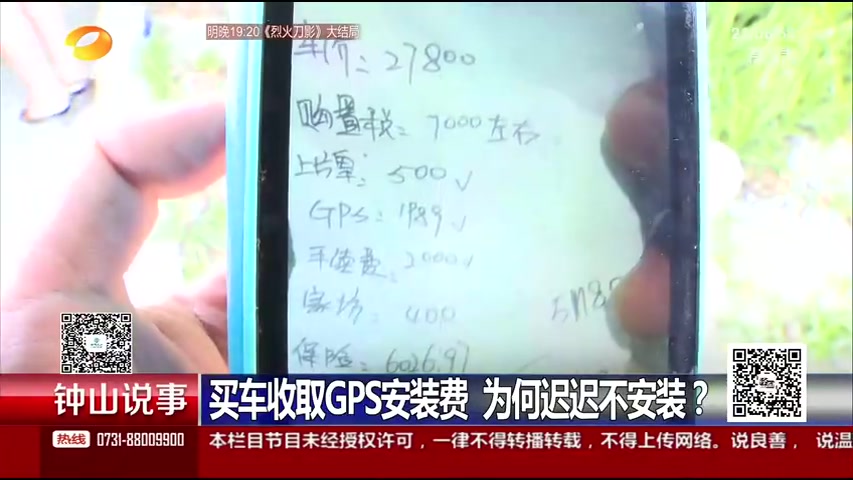 明晚19:20《烈火刀影》大结局
车价：27800
购置税：7000左右
上牌：500√
GPS：1989√
手续费：2000√
400
保险：6026.97
钟山说事
买车收取GPS安装费 为何迟迟不安装？
热线 0731-88009900
本栏目节目未经授权许可，一律不得转播转载，不得上传网络。说良善， 说温